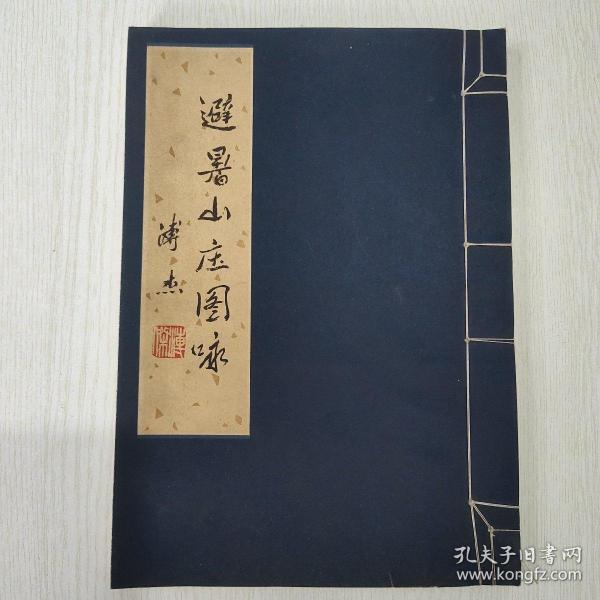 避暑山庄图咏
溥杰
溥杰
孔夫子旧书网
www.kongfz.com